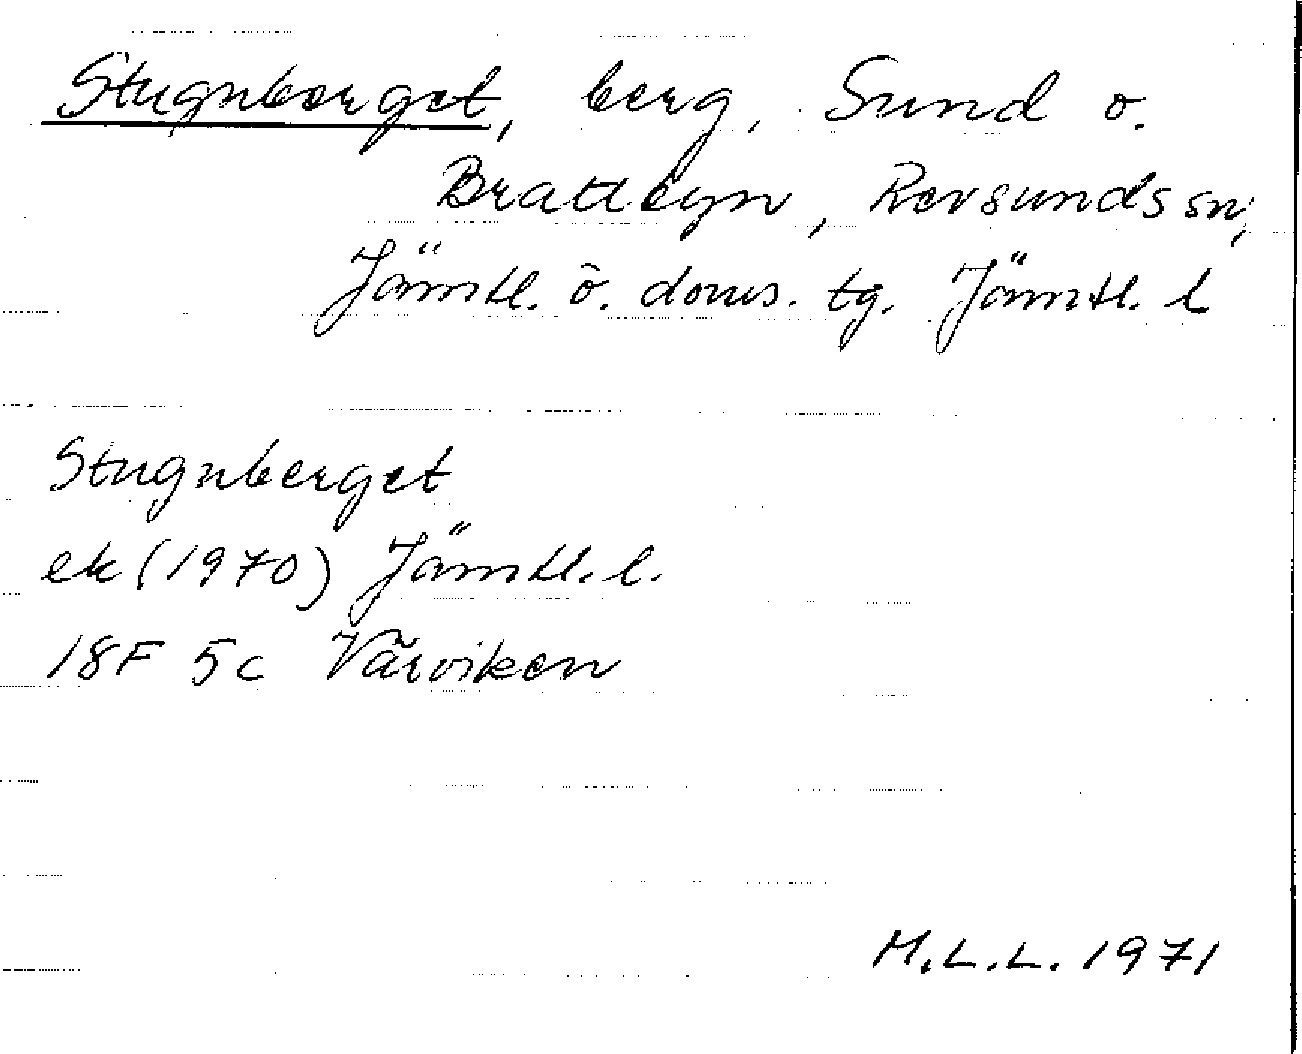 Stugnberget, berg, Sund o.
Brattbyn, Revsunds sn,
Jämtl. ö. doms. tg. Jämtl. l
Stugnberget
ek (1970) Jämtl. l.
18F 5c Våviken
M.L.L. 1971